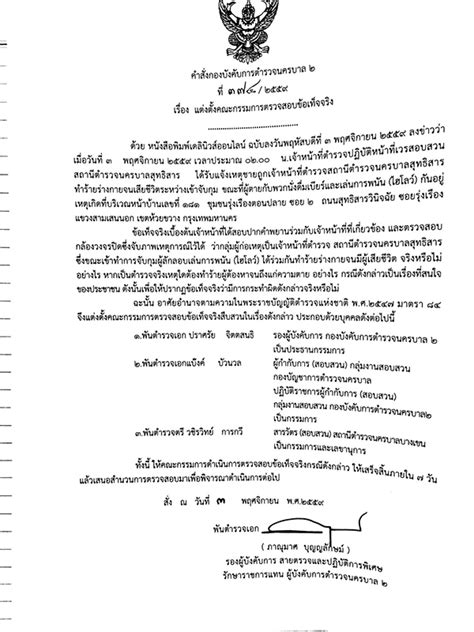 คำสั่งกองบังคับการตำรวจนครบาล ๒
ที่ ๓๗๔/๒๕๕๙
เรื่อง แต่งตั้งคณะกรรมการตรวจสอบข้อเท็จจริง
ด้วย หนังสือพิมพ์เดลินิวส์ออนไลน์ ฉบับลงวันพฤหัสบดีที่ ๓ พฤศจิกายน ๒๕๕๙ ลงข่าวว่า
เมื่อวันที่ ๓ พฤศจิกายน ๒๕๕๙ เวลาประมาณ ๐๒.๐๐ น.เจ้าหน้าที่ตำรวจปฏิบัติหน้าที่เวรสอบสวน
สถานีตำรวจนครบาลสุทธิสาร ได้รับแจ้งเหตุชายถูกเจ้าหน้าที่ตำรวจสถานีตำรวจนครบาลสุทธิสาร
ทำร้ายร่างกายจนเสียชีวิตระหว่างเข้าจับกุม ขณะที่ผู้ตายกับพวกนั่งดื่มเบียร์และเล่นการพนัน (ไฮโลว์) กันอยู่
เหตุเกิดที่บริเวณหน้าบ้านเลขที่ ๑๘๑ ชุมชนรุ่งเรืองตอนปลาย ซอย ๒ ถนนสุทธิสารวินิจฉัย ซอยรุ่งเรือง
แขวงสามเสนนอก เขตห้วยขวาง กรุงเทพมหานคร
ข้อเท็จจริงเบื้องต้นเจ้าหน้าที่ได้สอบปากคำพยานร่วมกับเจ้าหน้าที่ที่เกี่ยวข้อง และตรวจสอบ
กล้องวงจรปิดซึ่งจับภาพเหตุการณ์ไว้ได้ ว่ากลุ่มผู้ก่อเหตุเป็นเจ้าหน้าที่ตำรวจ สถานีตำรวจนครบาลสุทธิสาร
ซึ่งขณะเข้าทำการจับกุมผู้ลักลอบเล่นการพนัน (ไฮโลว์) ได้ร่วมกันทำร้ายร่างกายจนมีผู้เสียชีวิต จริงหรือไม่
อย่างไร หากเป็นตำรวจจริงเหตุใดต้องทำร้ายผู้ต้องหาจนถึงแก่ความตาย อย่างไร กรณีดังกล่าวเป็นเรื่องที่สนใจ
ของประชาชน ดังนั้นเพื่อให้ปรากฏข้อเท็จจริงว่ามีการกระทำดังกล่าวจริงหรือไม่
ฉะนั้น อาศัยอำนาจตามความในพระราชบัญญัติตำรวจแห่งชาติ พ.ศ.๒๕๔๗ มาตรา ๘๔
จึงแต่งตั้งคณะกรรมการตรวจสอบข้อเท็จจริงสืบสวนในเรื่องดังกล่าว ประกอบด้วยบุคคลดังต่อไปนี้
๑.พันตำรวจเอก ปราศรัย จิตตสนธิ รองผู้บังคับการ กองบังคับการตำรวจนครบาล ๒
เป็นประธานกรรมการ
๒.พันตำรวจเอกแป๊งค์ บัวนวล ผู้กำกับการ (สอบสวน) กลุ่มงานสอบสวน
กองบัญชาการตำรวจนครบาล
ปฏิบัติราชการผู้กำกับการ (สอบสวน)
กลุ่มงานสอบสวน กองบังคับการตำรวจนครบาล๒
เป็นกรรมการ
๓.พันตำรวจตรี วชิรวิทย์ การกวี สารวัตร (สอบสวน) สถานีตำรวจนครบาลบางเขน
เป็นกรรมการและเลขานุการ
ทั้งนี้ ให้คณะกรรมการดำเนินการตรวจสอบข้อเท็จจริงกรณีดังกล่าว ให้เสร็จสิ้นภายใน ๗ วัน
แล้วเสนอสำนวนการตรวจสอบมาเพื่อพิจารณาดำเนินการต่อไป
สั่ง ณ วันที่ ๓ พฤศจิกายน พ.ศ.๒๕๕๙
พันตำรวจเอก
( ภาณุมาศ บุญญลักษม์ )
รองผู้บังคับการ สายตรวจและปฏิบัติการพิเศษ
รักษาราชการแทน ผู้บังคับการตำรวจนครบาล ๒